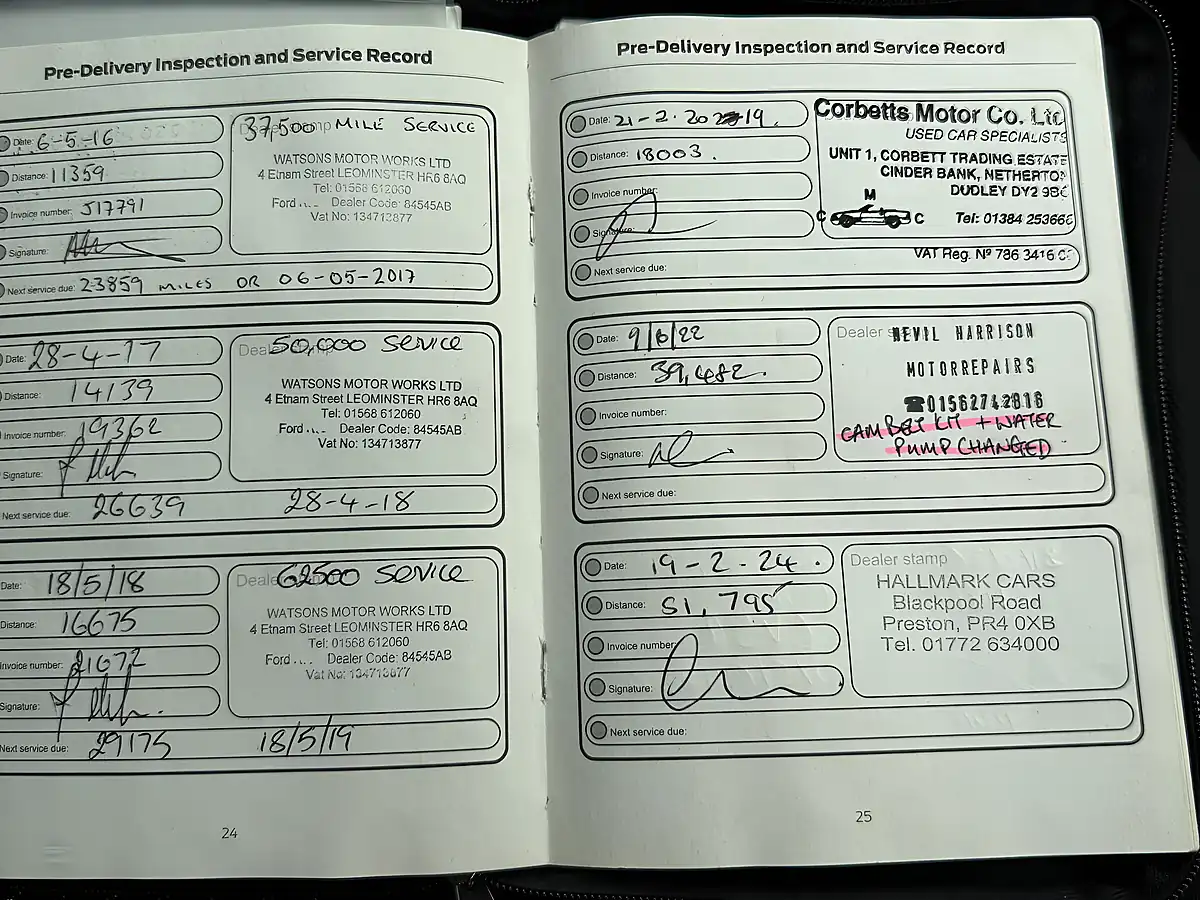 Pre-Delivery Inspection and Service Record
Date: 6-5-16
Distance: 11359
Invoice number: J17791
Signature:
Next service due: 23859 MILES OR 06-05-2017
37,500 MILE SERVICE
WATSONS MOTOR WORKS LTD
4 Etnam Street LEOMINSTER HR6 8AQ
Tel: 01568 612060
Ford .... Dealer Code: 84545AB
Vat No: 134713877
Date: 28-4-17
Distance: 14139
Invoice number: 19362
Signature:
Next service due: 26639 28-4-18
Dealer stamp
50,000 Service
WATSONS MOTOR WORKS LTD
4 Etnam Street LEOMINSTER HR6 8AQ
Tel: 01568 612060
Ford .... Dealer Code: 84545AB
Vat No: 134713877
Date: 18/5/18
Distance: 16675
Invoice number: 21672
Signature:
Next service due: 29175 18/5/19
Dealer stamp
62500 Service
WATSONS MOTOR WORKS LTD
4 Etnam Street LEOMINSTER HR6 8AQ
Tel: 01568 612060
Ford .... Dealer Code: 84545AB
Vat No: 134713877
24
Pre-Delivery Inspection and Service Record
Date: 21-2-2019.
Distance: 18003.
Invoice number:
Signature:
Next service due:
Corbetts Motor Co. Ltd
USED CAR SPECIALISTS
UNIT 1, CORBETT TRADING ESTATE
CINDER BANK, NETHERTON
DUDLEY DY2 9BC
C M C Tel: 01384 253666
VAT Reg. Nº 786 3416 C
Date: 9/6/22
Distance: 39,482.
Invoice number:
Signature:
Next service due:
Dealer stamp
NEVIL HARRISON
MOTORREPAIRS
☎01562742816
CAM BELT KIT + WATER
PUMP CHANGED
Date: 19-2-24.
Distance: 51,795
Invoice number:
Signature:
Next service due:
Dealer stamp
HALLMARK CARS
Blackpool Road
Preston, PR4 0XB
Tel. 01772 634000
25